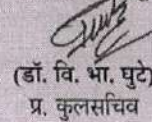 (डॉ. वि. भा. घुटे)
प्र. कुलसचिव